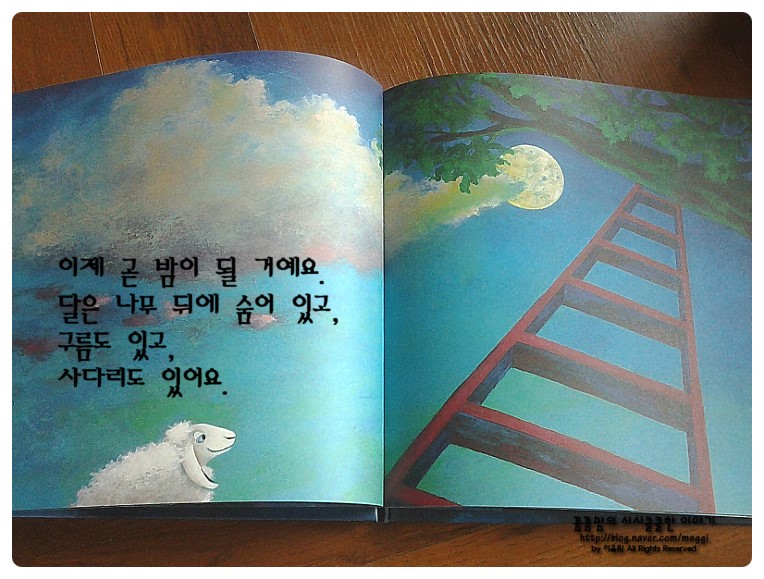 이제 곧 밤이 될 거예요.
달은 나무 뒤에 숨어 있고,
구름도 있고,
사다리도 있어요.
꼼꼼맘의 시시콜콜한 이야기
http://blog.naver.com/moggi
All Rights Reserved